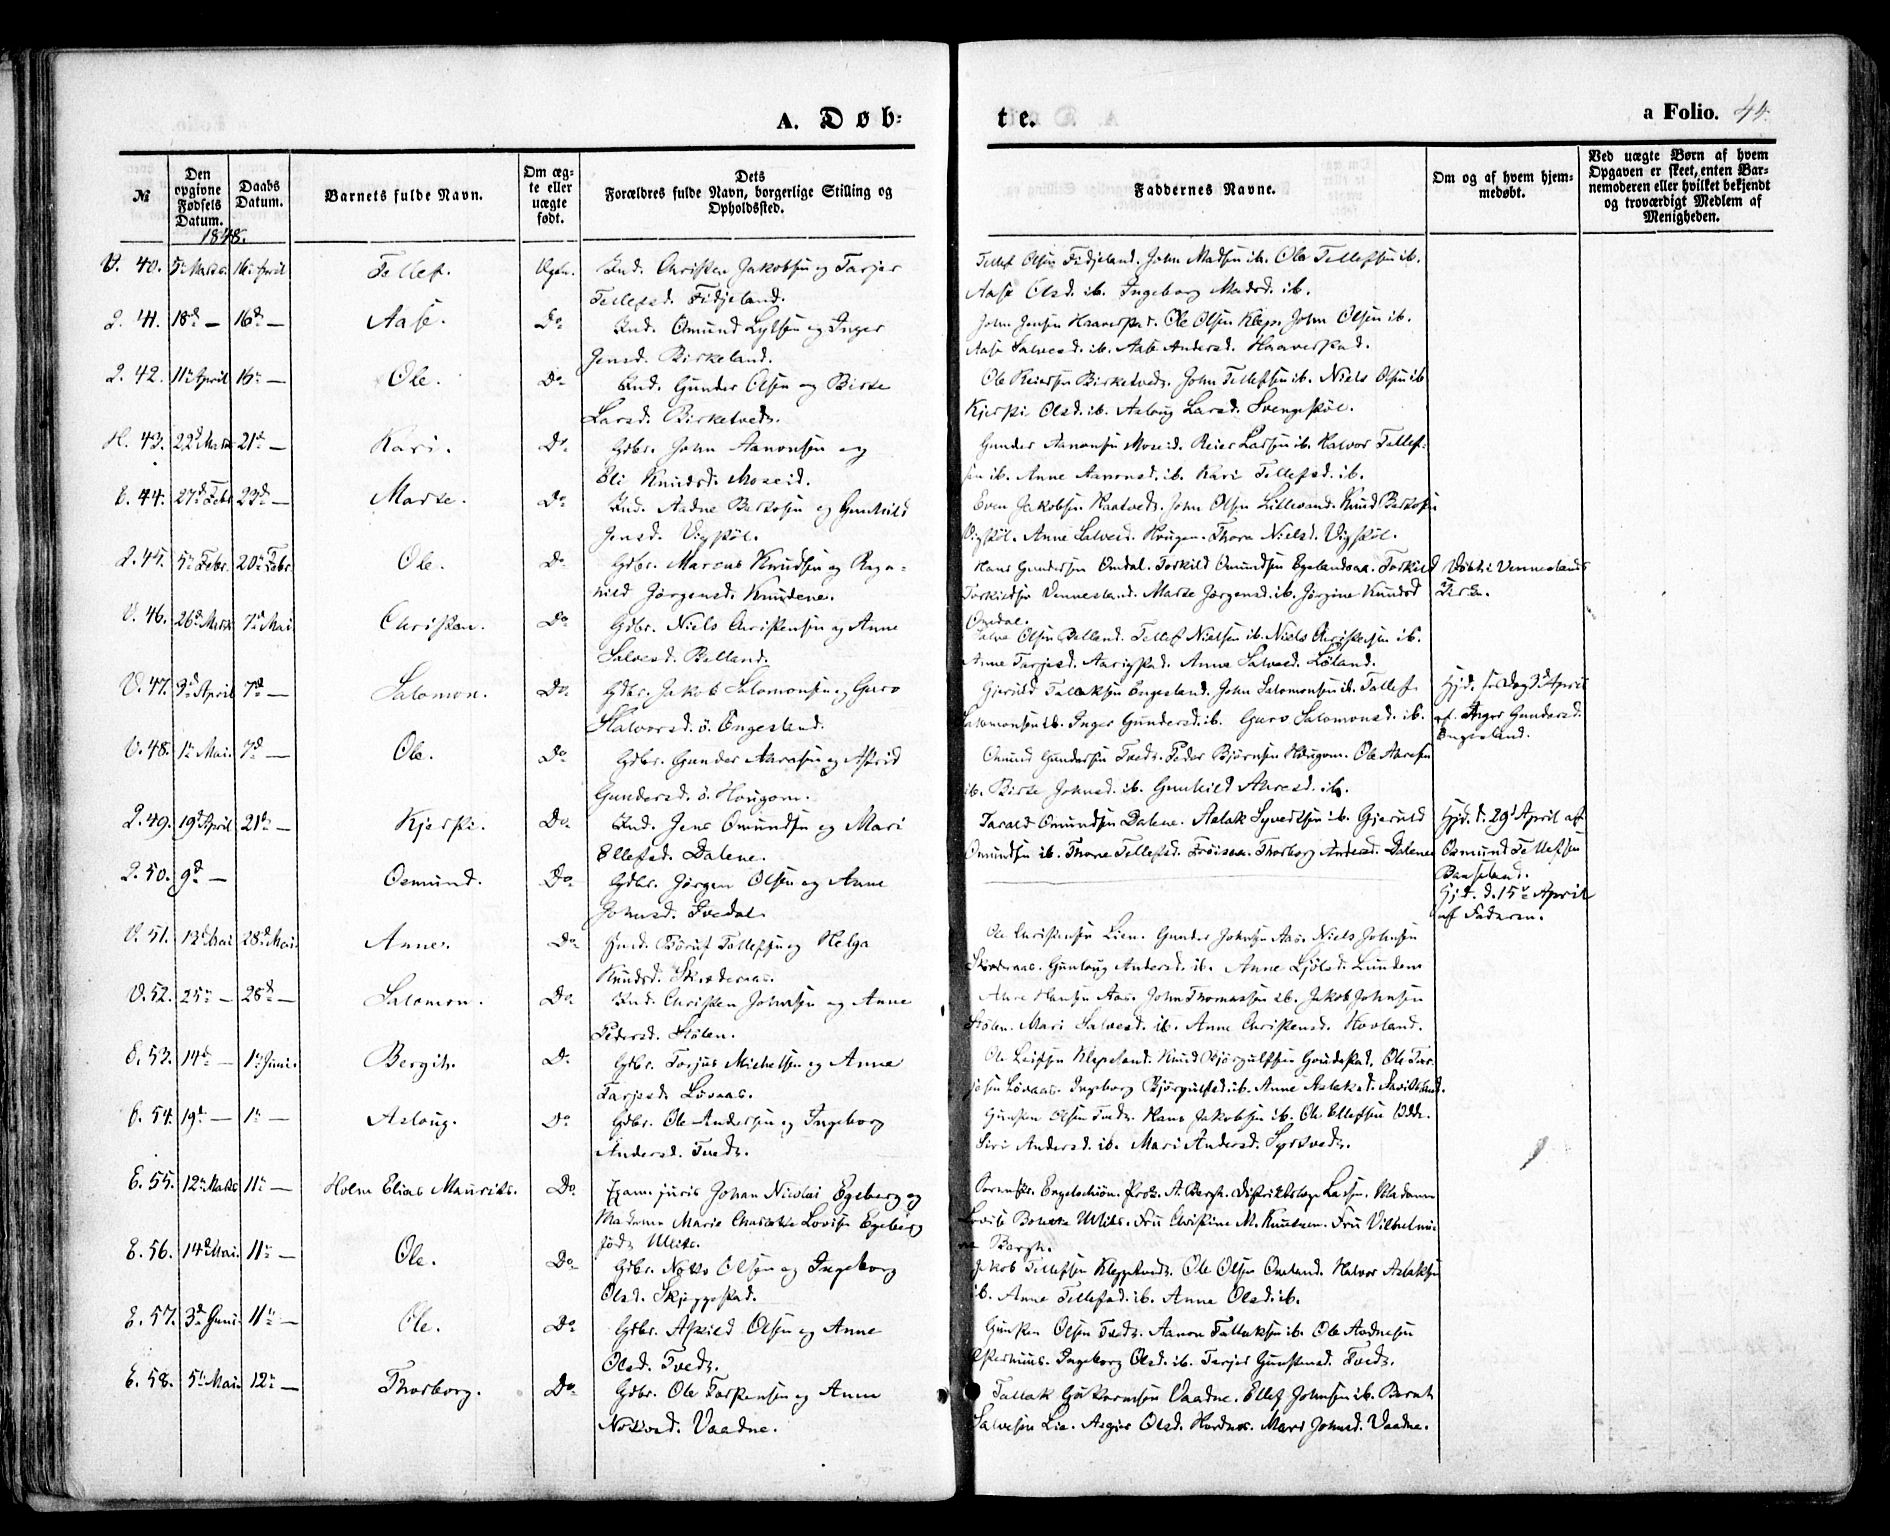 A. Døb-
te.
a Folio. 44.
№
Den opgivne Fødsels Datum.
Daabs Datum.
Barnets fulde Navn.
Om ægte eller uægte født.
Dets Forældres fulde Navn, borgerlige Stilling og Opholdssted.
Faddernes Navne.
Om og af hvem hjemmedøbt.
Ved uægte Børn af hvem Opgaven er skeet, enten Barnemoderen eller hvilket bekjendt og troværdigt Medlem af Menigheden.
1848.
V. 40. 5te Marts. 16de April Tellef. Ægte. Ind. Christen Jakobsen og Tarjer
Tellefsd. Fidjeland.
Tellef Olsen Fidjeland. John Madsen ib. Ole Tellefsen ib.
Aase Olsd. ib. Ingeborg Madsd. ib.
41. 18d — 16d — Aase. Do Ind. Omund Lylsen og Inger
Jensd. Birkeland.
John Jensen Haaverstad. Ole Olsen Klep. John Olsen ib.
Aase Salvesd. ib. Aase Andersd. Haaverstad.
42. 11te April 16de — Ole. Do Ind. Gunder Olsen og Birte
Larsd. Birketvedt.
Ole Reiersen Birketvedt. John Tellefsen ib. Niels Olsen ib.
Kjersti Olsd. ib. Asloug Larsd. Svengestøl.
H. 43. 22d Marts 21d — Kari. Do Gdbr. John Aanonsen og
Eli Knudsd. Moseid.
Gunder Aanonsen Moseid. Reier Larsen ib. Halvor Tellef-
sen ib. Anne Aanonsd. ib. Kari Tellefsd. ib.
E. 44. 27d Febr 23d — Marte. Do Ind. Aadne Bertosen og Gunhild
Jensd. Vigstøl.
Even Jakobsen Kaatvedt. John Olsen Lillesand. Knud Bertosen
Vigstøl. Anne Salvesd. Hougen. Thora Nielsd. Vigstøl.
45. 5te Febr. 20de Febr. Ole. Do Gdbr. Marcus Knudsen og Ragn-
hild Jørgensd. Knudene.
Hans Gundersen Omdal. Torkild Omundsen Egelandsaa. Torkild
Torkildsen Vennesland. Marte Jørgensd. ib. Jørgine Knudsd
Omdal.
Døbt i Venneslands
Kirke.
V. 46. 26d Marts 7de Mai Christen. Do Gdbr. Niels Christensen og Anne
Salvesd. Belland.
Salve Olsen Belland. Tellef Nielsen ib. Niels Christensen ib.
Anne Tarjesd. Aarigstad. Anne Salvesd. Løland.
V. 47. 3d April 7d — Salomon. Do. Gdbr. Jakob Salomonsen og Guro
Halvorsd. ö. Engesland.
Gjeruld Tallaksen Engesland. John Salomonsen ib. Tellef
Salomonsen ib. Inger Gundersd. ib. Guro Salomonsd. ib.
Hjd. 3d April
af Inger Gundersd.
Engesland.
V. 48. 1te Mai. 7d — Ole. Do Gdbr. Gunder Aaresen og Astrid
Gundersd. ö. Hougom.
Omund Gundersen Tvedt. Peder Bjørnsen Hougom. Ole Aaresen
ib. Birte Johnsd. ib. Gunhild Aaresd. ib.
49. 19d April 21de — Kjersti. Do. Ind. Jens Omundsen og Mari
Ellefsd. Dalene.
Tarald Omundsen Dalene. Aslak Syvertsen ib. Gjeruld
Omundsen ib. Thore Tellefsd. Frøisaa. Thorborg Andersd. Dalene
Hjd. d. 29d April af
Osmund Tellefsen
50. 9d — Osmund. Do Gdbr. Jørgen Olsen og Anne
Johnsd. Ivedal.
Hjd. d. 15de April
af Faderen.
V. 51. 13d Mai 28d Mai. Anne. Do Ind. Tellefsen og Helga
Knudsd. Skisdernaas.
Ole Christensen Lien. Gunder Johnsen Aas. Niels Johnsen
Gunloug Andersd. ib. Anne Ljølsd. Lunden
V. 52. 25de — 28d — Salomon. Do. Ind. Christen Johnsen og Anne
Pedersd. Stølen.
Are Hansen Aas. John Thomassen ib. Jakob Johnsen
Stølen. Mari Salvesd. ib. Anne Christensd. Hovland.
E. 53. 14d — 1te Juni. Bergit. Do Gdbr. Torjus Michelsen og Anne
Tarjesd. Løvaas.
Ole Leifsen Klepeland. Knud Bjørgulfsen Goudestad. Ole Tar-
jesen Løvaas. Ingeborg Bjørgulfsd. ib. Anne Aslaksd.
E. 54. 19d — 1te — Asloug. Do Gdbr. Ole Andersen og Ingeborg
Andersd. Tvedt.
Gunsten Olsen Tvedt. Hans Jakobsen ib. Ole Ellefsen Udde.
Siri Andersd. ib. Mari Andersd. Syrtvedt.
E. 55. 12te Marts 11te — Holm Elias Maurits. Do Exam. juris Johan Nicolai Egeberg og
Madame Marie Charlotte Lovise Egeberg
født Mits.
Sorenskr. Engelschiøn. Prok. A. Bergh. Distriktslæge Larsen. Madame
Lovise Mits. Fru Christine M. Knutzen. Fru Vilhelmi-
ne Bergh.
E. 56. 14d Mai. 11te — Ole. Do Gdbr. Notto Olsen og Ingeborg
Olsd. Skjeggestad.
Jakob Tellefsen Klepptvedt. Ole Olsen Omland. Halvor Aslaksen
ib. Anne Tellefsd. ib. Anne Olsd. ib.
E. 57. 3d Juni. 11te — Ole. Do Gdbr. Askild Olsen og Anne
Olsd. Tvedt.
Gunsten Olsen Tvedt. Aanon Tallaksen ib. Ole Aadnesen
Ingeborg Olsd. ib. Tarjer Gunstensd. Tvedt.
E. 58. 5te Mai. 12te — Thorborg. Do Gdbr. Ole Torstensen og Anne
Nottosd. Vaadne.
Tallak Guttormsen Vaadne. Ellef Johnsen ib. Bernt
Salvesen Lie. Asgier Olsd. Hordnes. Mari Johnsd. Vaadne.